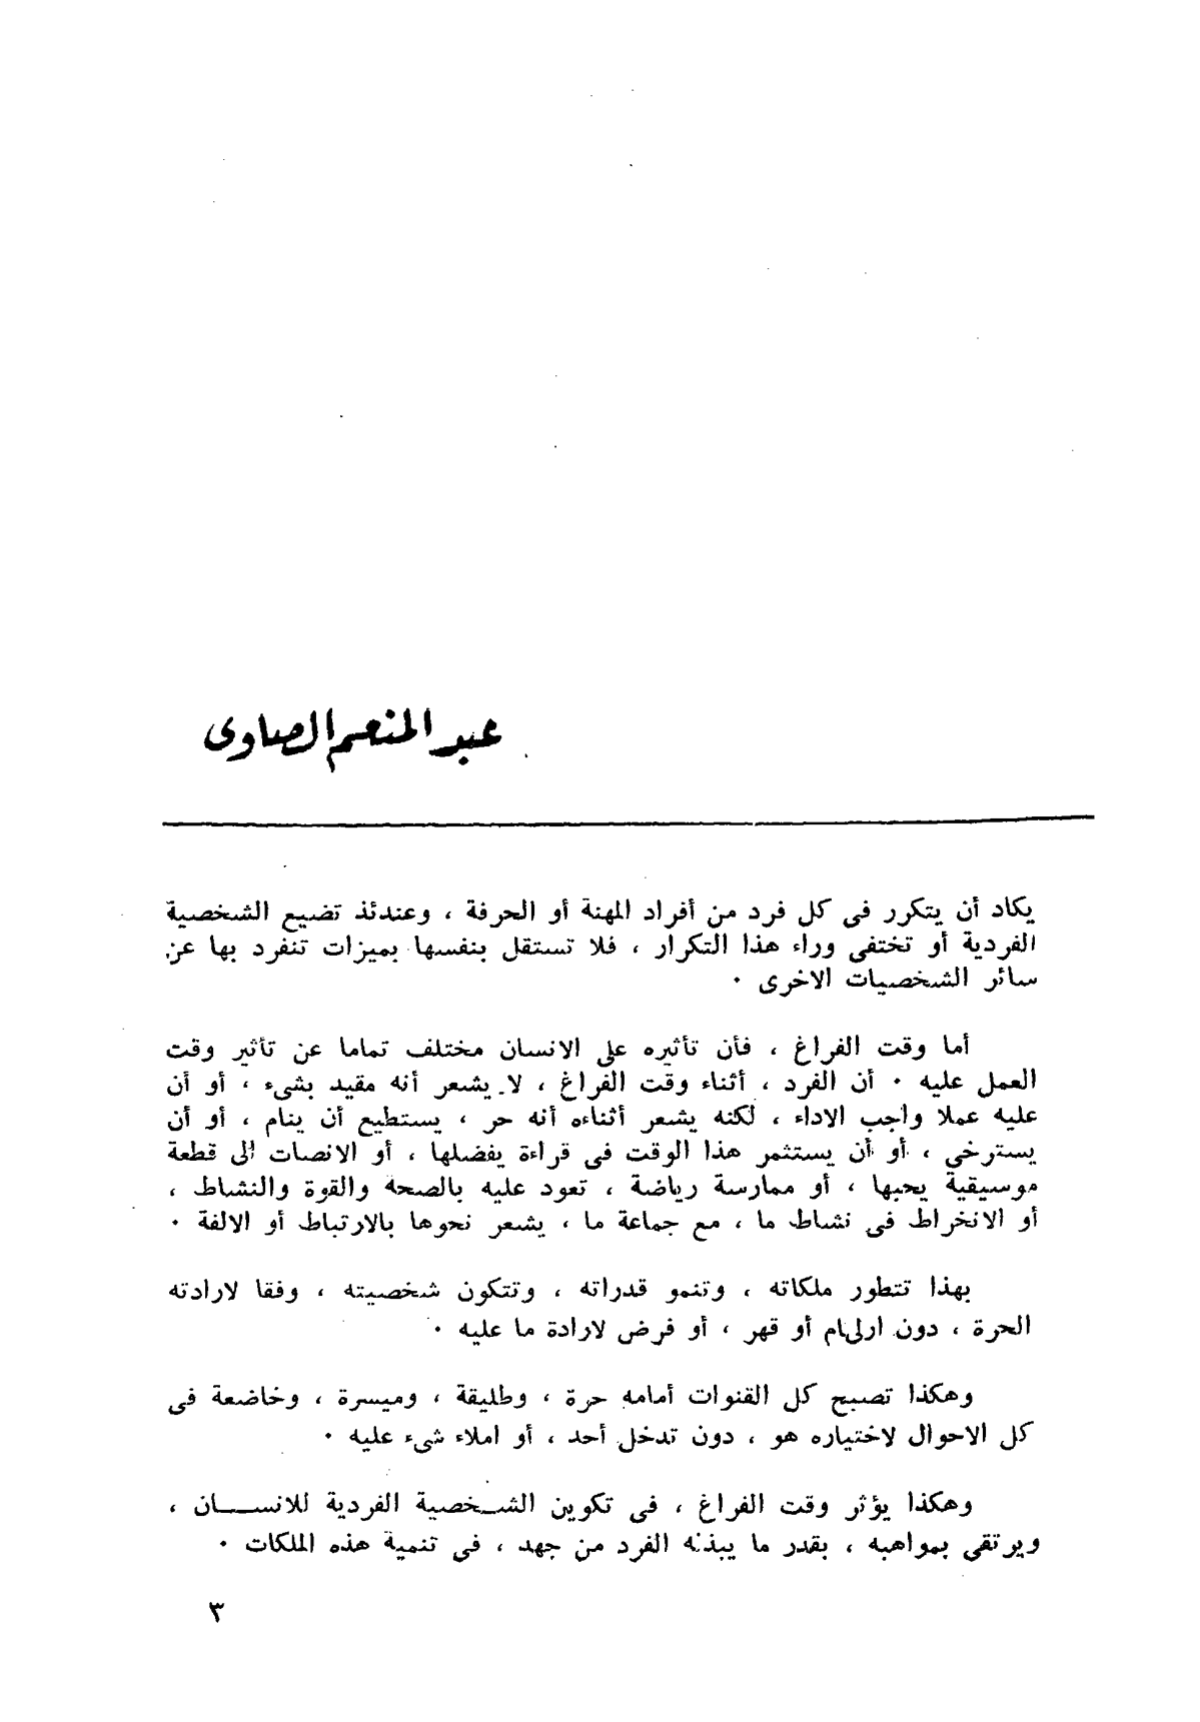 عبد المنعم الصاوى
يكاد أن يتكرر فى كل فرد من أفراد المهنة أو الحرفة ، وعندئذ تضيع الشخصية
الفردية أو تختفى وراء هذا التكرار ، فلا تستقل بنفسها بميزات تنفرد بها عن
سائر الشخصيات الاخرى ٠
أما وقت الفراغ ، فأن تأثيره على الانسان مختلف تماما عن تأثير وقت
العمل عليه ٠ أن الفرد ، أثناء وقت الفراغ ، لا يشعر أنه مقيد بشىء ، أو أن
عليه عملا واجب الاداء ، لكنه يشعر أثناءه أنه حر ، يستطيع أن ينام ، أو أن
يسترخى ، أو أن يستثمر هذا الوقت فى قراءة يفضلها ، أو الانصات الى قطعة
موسيقية يحبها ، أو ممارسة رياضة ، تعود عليه بالصحة والقوة والنشاط ،
أو الانخراط فى نشاط ما ، مع جماعة ما ، يشعر نحوها بالارتباط أو الالفة ٠
بهذا تتطور ملكاته ، وتنمو قدراته ، وتتكون شخصيته ، وفقا لارادته
الحرة ، دون أو قهر ، أو فرض لارادة ما عليه ٠
وهكذا تصبح كل القنوات أمامه حرة ، وطليقة ، وميسرة ، وخاضعة فى
كل الاحوال لاختياره هو ، دون تدخل أحد ، أو املاء شىء عليه ٠
وهكذا يؤثر وقت الفراغ ، فى تكوين الشـخصية الفردية للانســـان ،
ويرتقى بمواهبه ، بقدر ما يبذله الفرد من جهد ، فى تنمية هذه الملكات ٠
٣